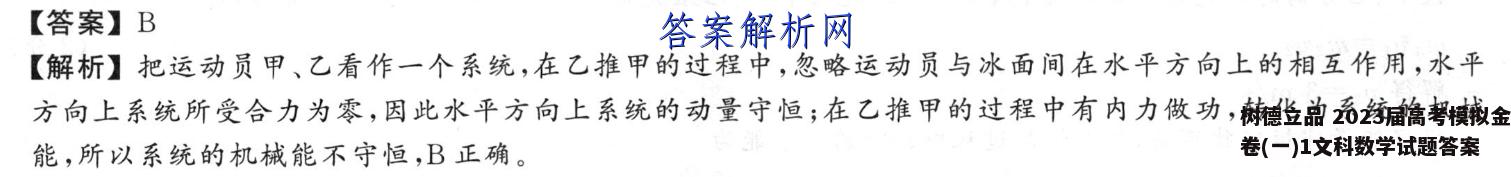 【答案】B
答案解析网
【解析】把运动员甲、乙看作一个系统,在乙推甲的过程中,忽略运动员与冰面间在水平方向上的相互作用,水平
方向上系统所受合力为零,因此水平方向上系统的动量守恒;在乙推甲的过程中有内力做功,转化为系统的机械
能,所以系统的机械能不守恒,B 正确。
树德立品 2023届高考模拟金
卷(一)1文科数学试题答案